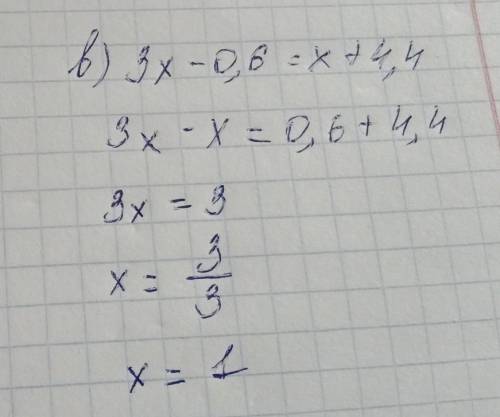 в) 3x - 0,6 = x + 4,4
3x - x = 0,6 + 4,4
3x = 3
x = 3/3
x = 1